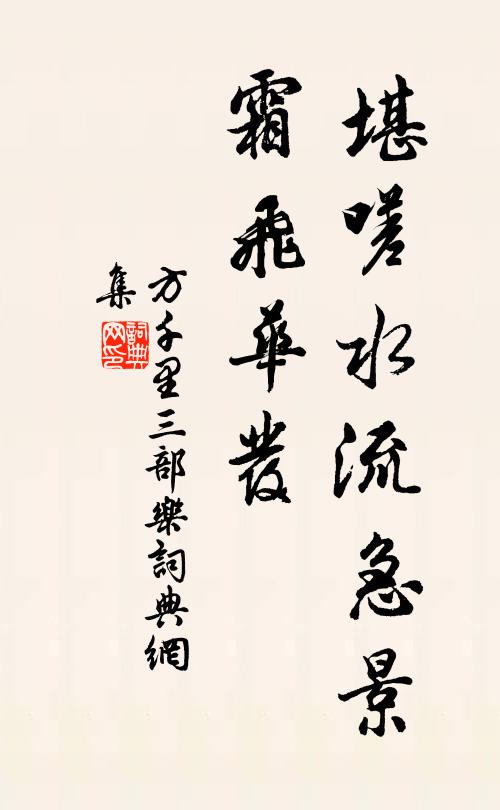 堪嗟水流急景
霜飛華發
方千里三部樂詞典網
集
詞典
网印